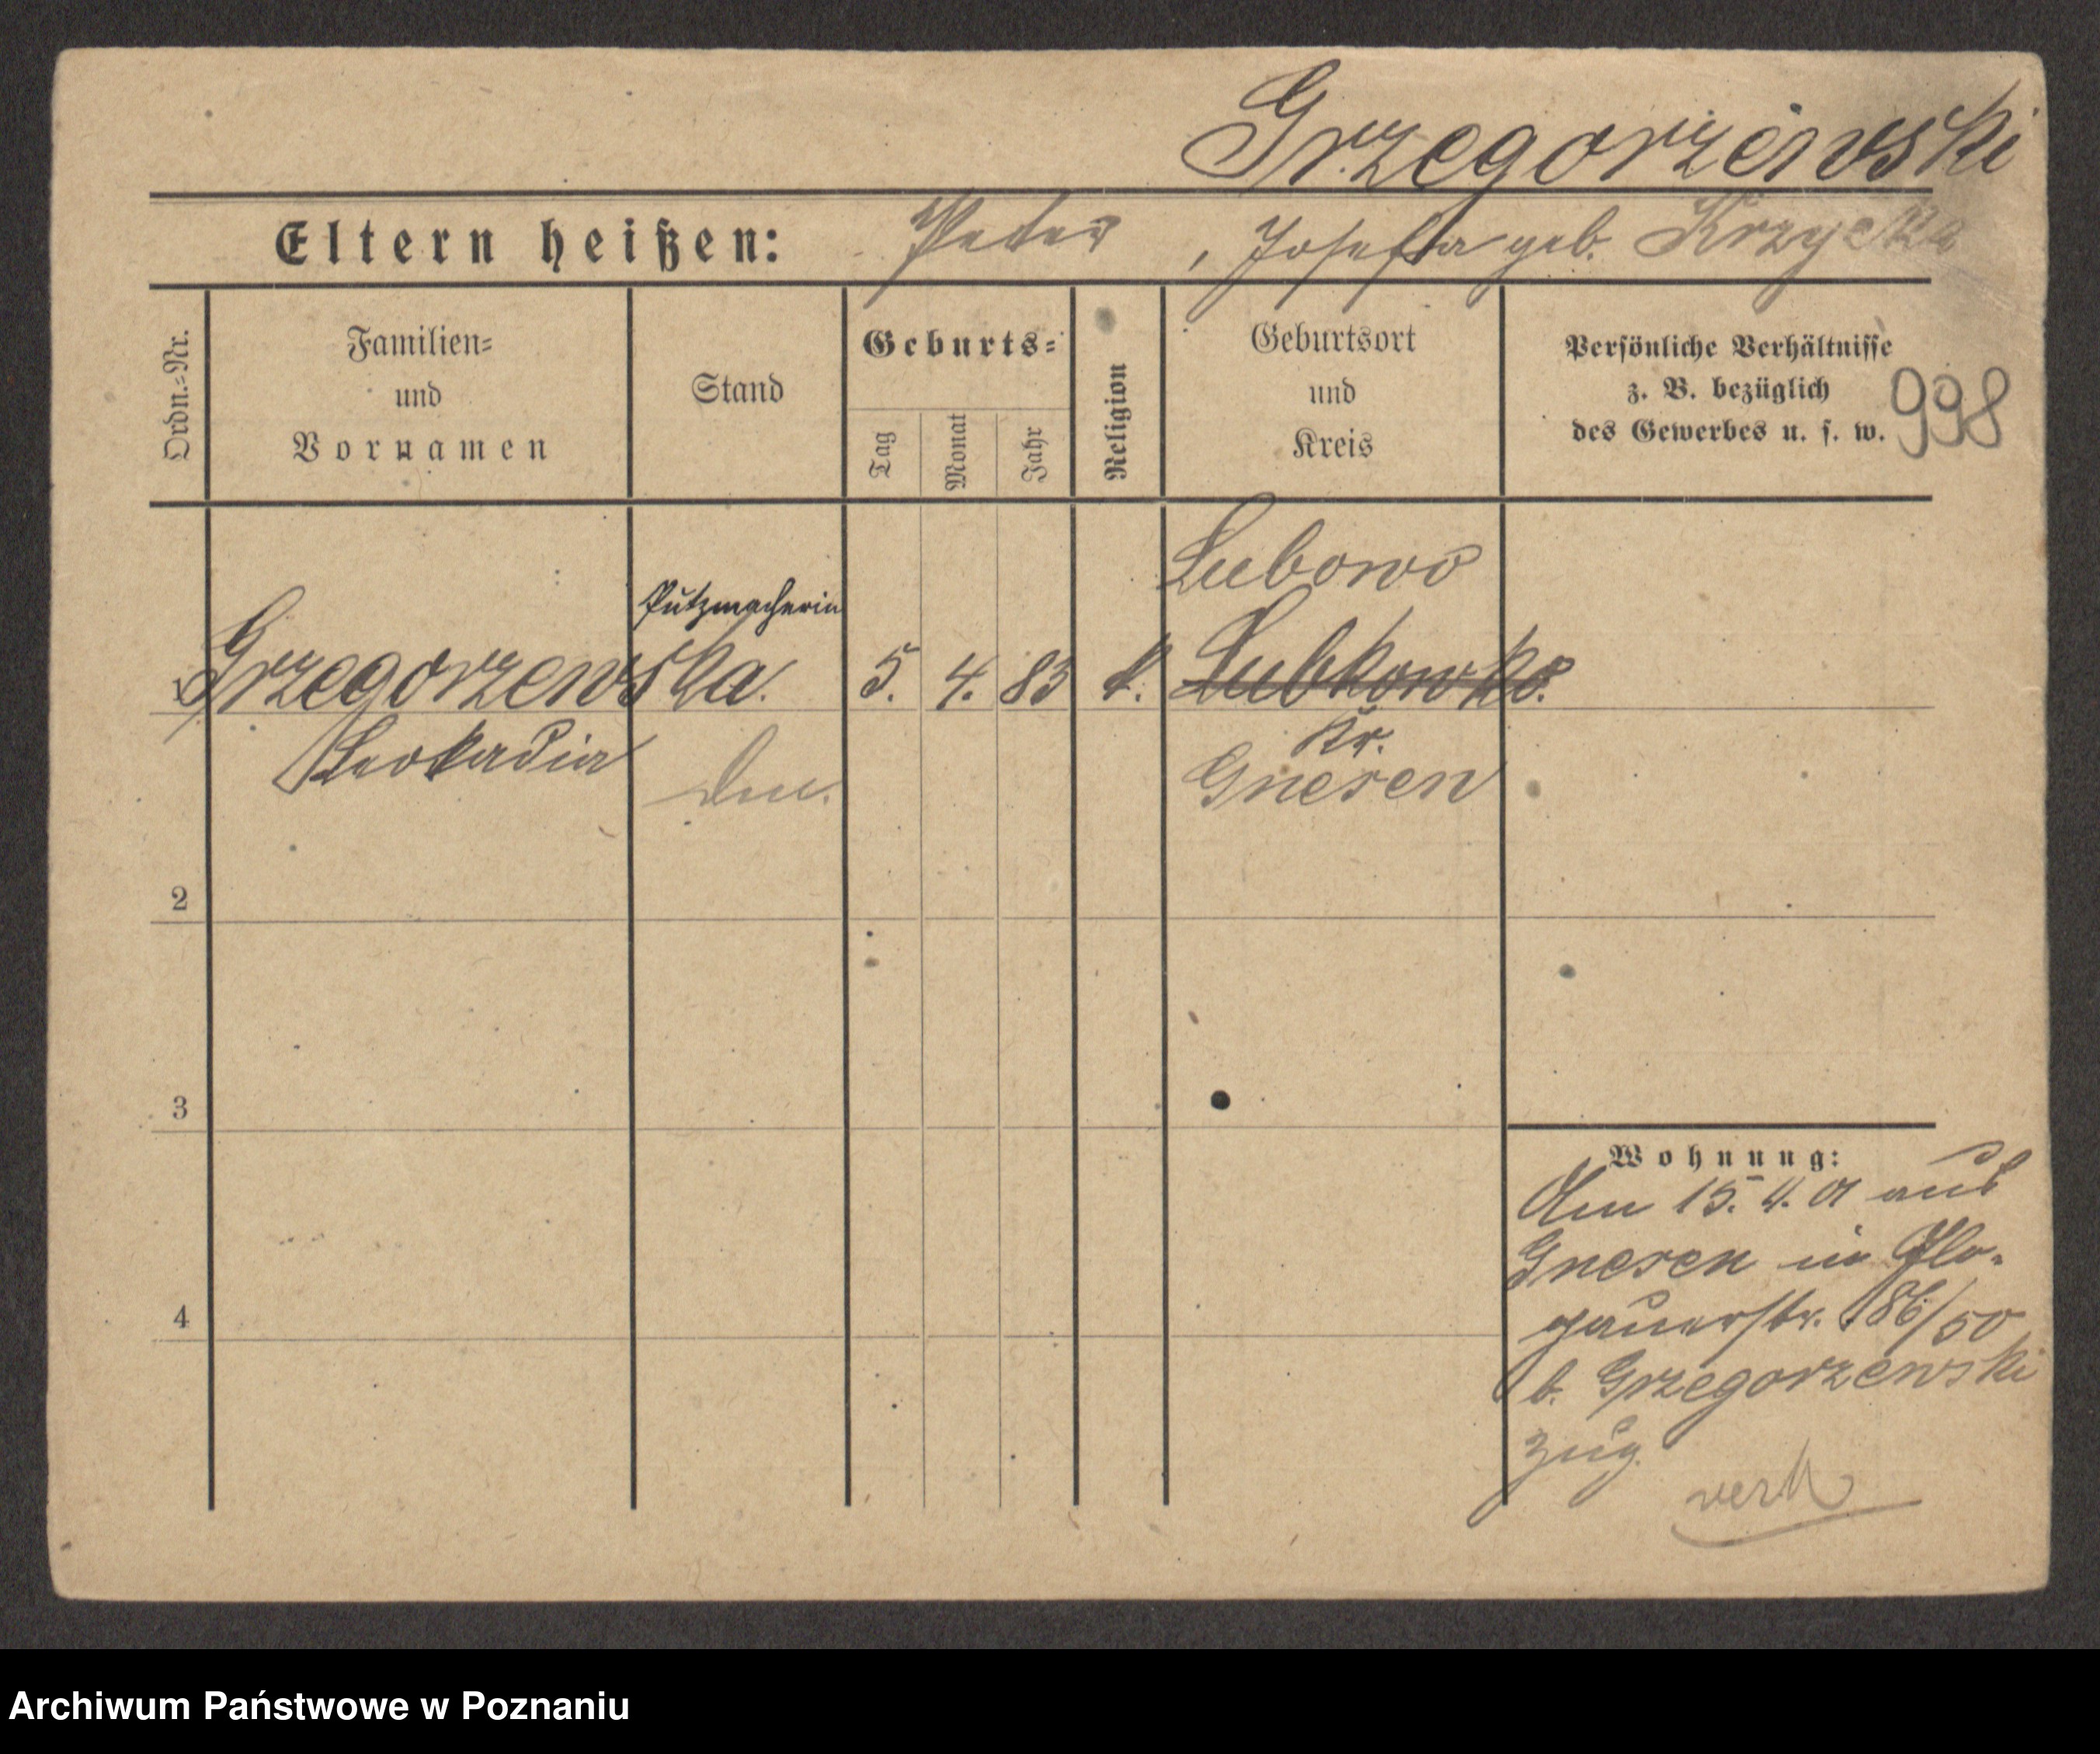 Grzegorzewski
Eltern heißen: Peter, Josefa geb. Krzycka
Ordn.-Nr.
Familien-
und
Vornamen
Stand
Geburts-
Tag
Monat
Jahr
Religion
Geburtsort
und
Kreis
Persönliche Verhältnisse
z. B. bezüglich
des Gewerbes u. s. w.
998
Lubowo
Putzmacherin
1 Grzegorzewska. 5. 4. 83 k. Lubkowko.
Kr.
Leokadia
Gnesen
2
3
4
Wohnung:
Am 15. 4. 01 aus
Gnesen in Glo-
gauerstr. 86/50
b. Grzegorzewski
zug.
verh
Archiwum Państwowe w Poznaniu